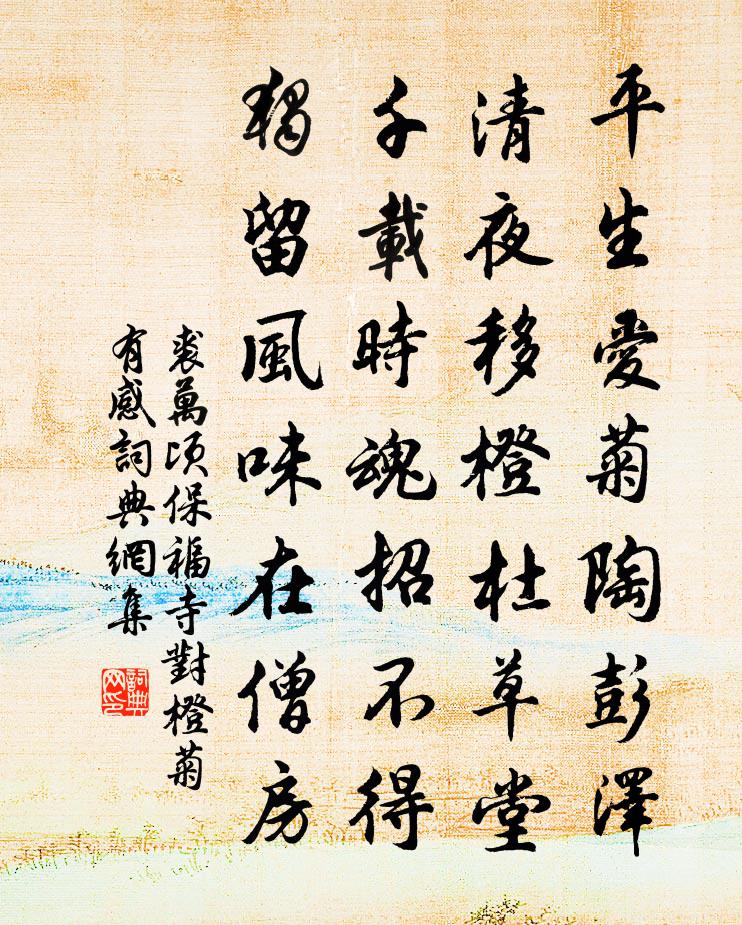 平生愛菊陶彭澤
清夜移橙杜草堂
千載時魂招不得
獨留風味在僧房
裘萬頃保福寺對橙菊
有感詞典網集
詞典网印